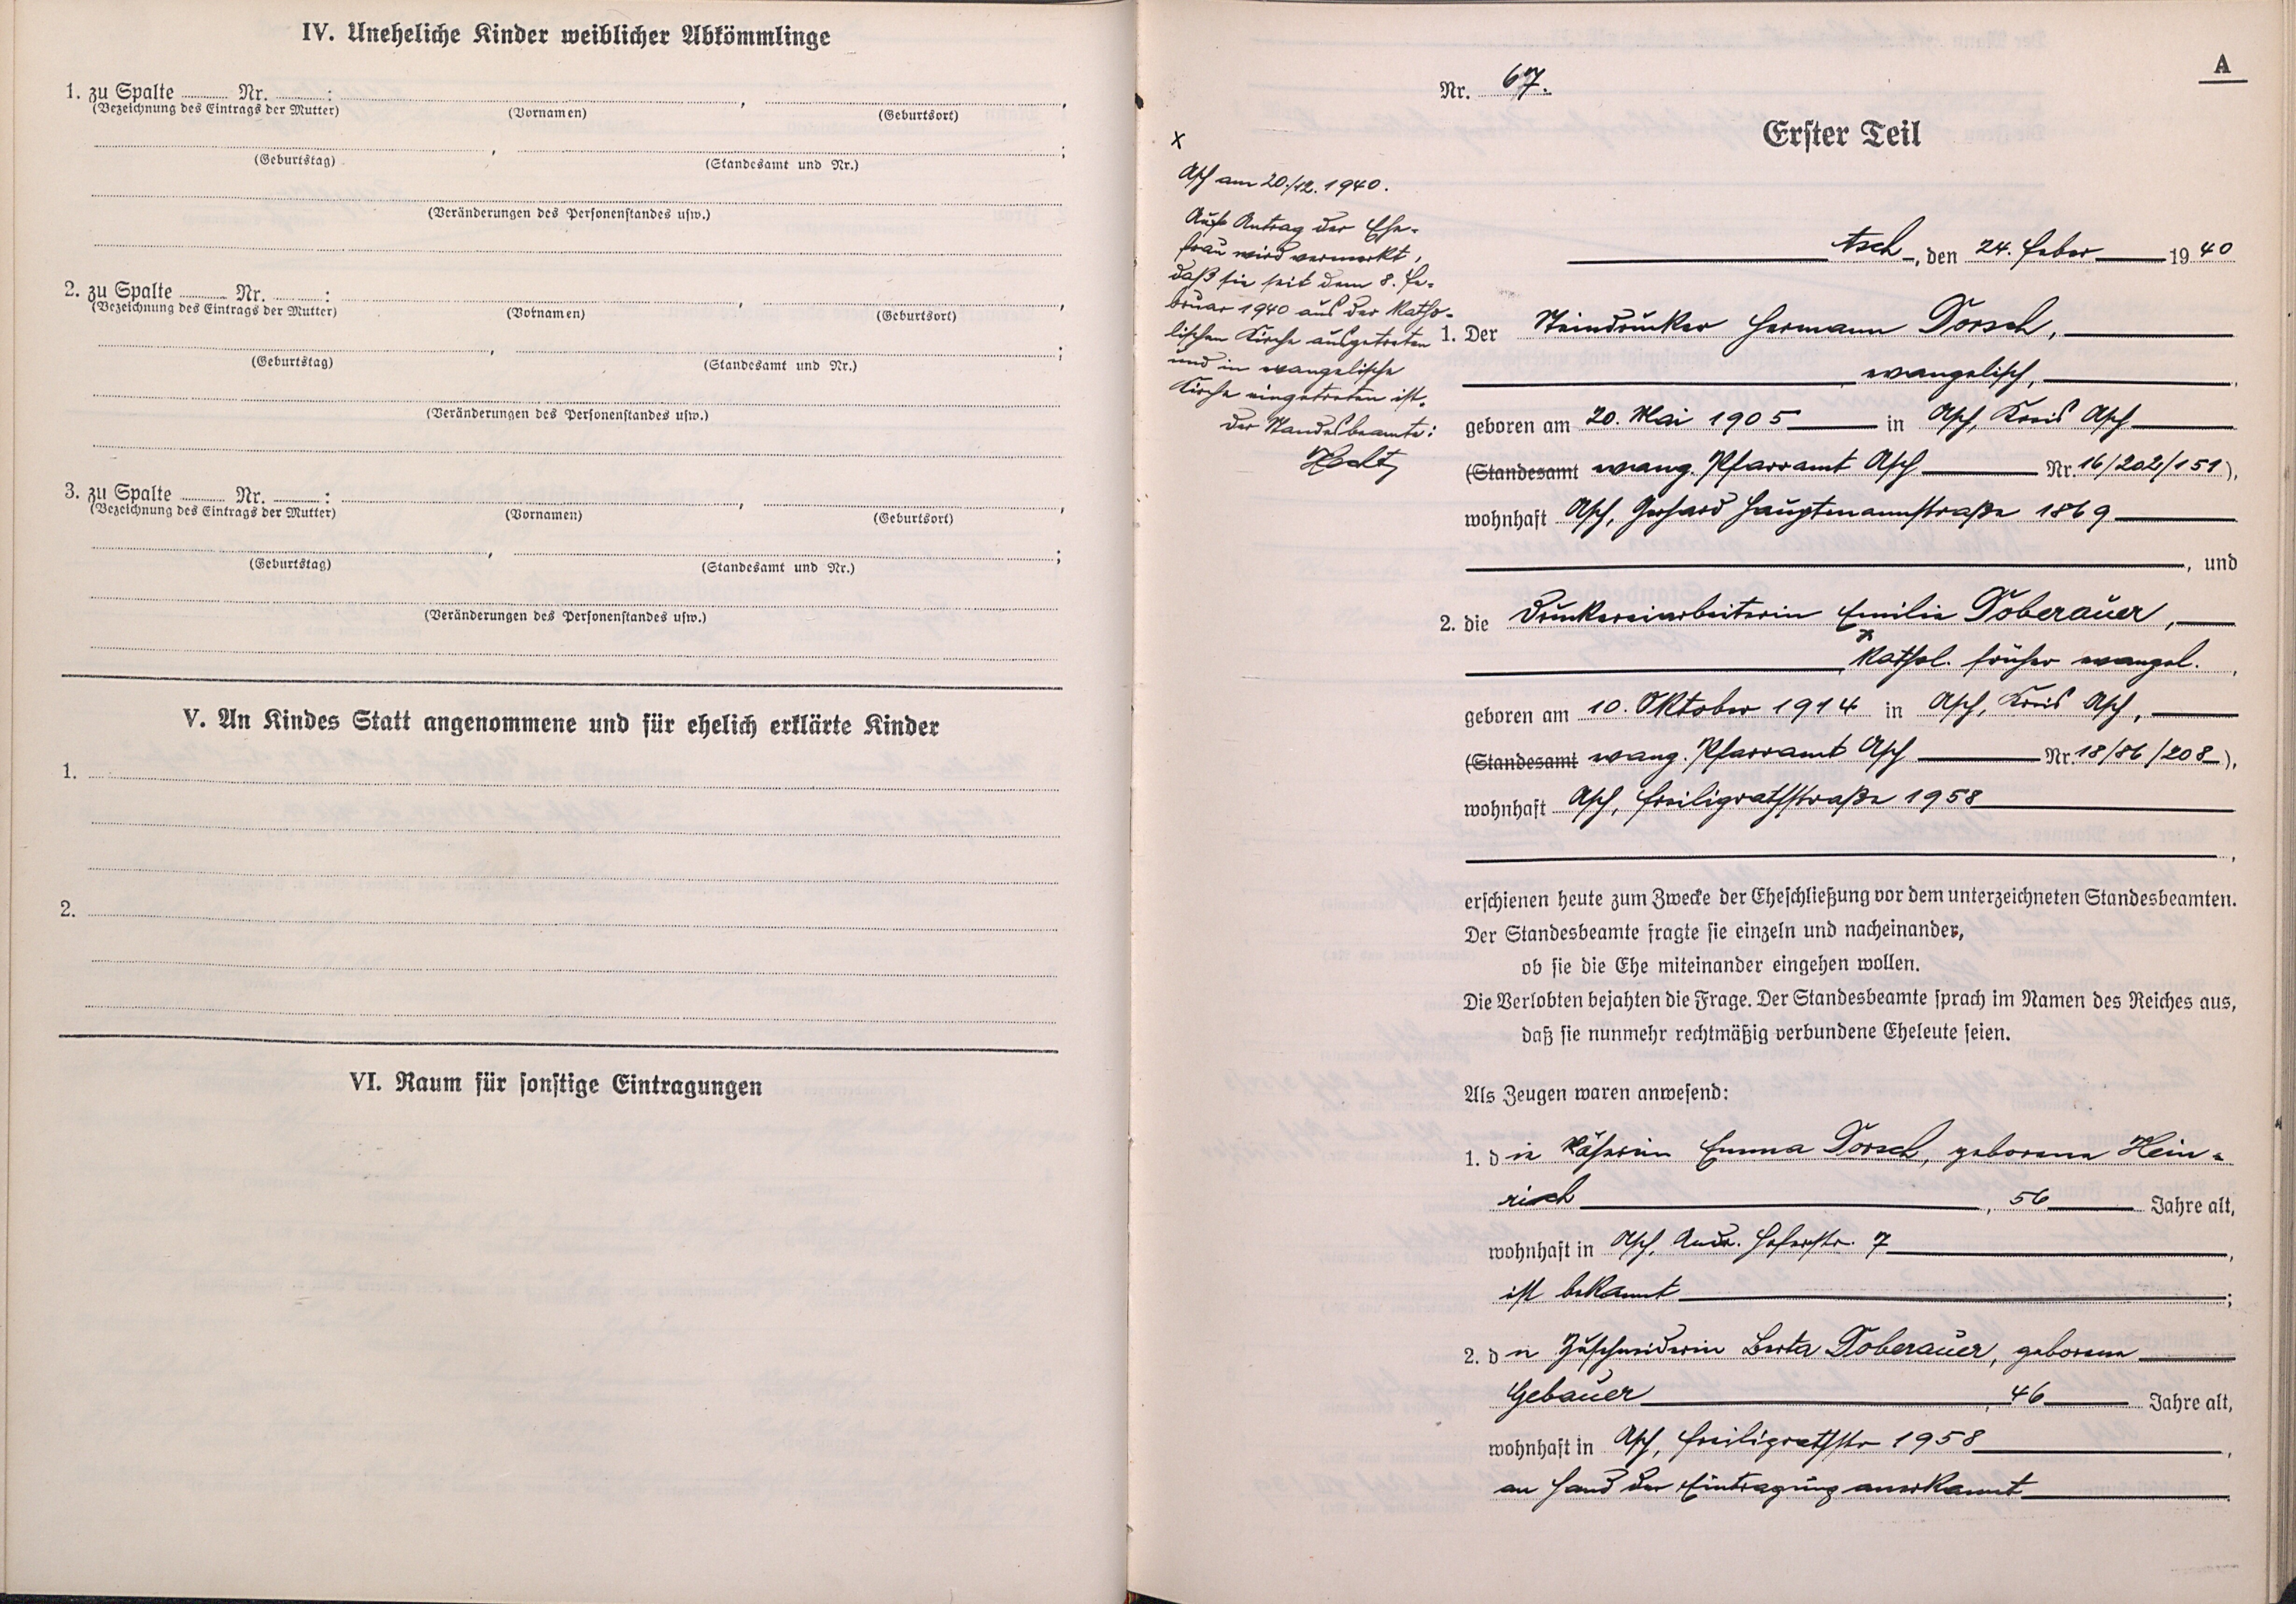 IV. Uneheliche Kinder weiblicher Abkömmlinge
1. zu Spalte ........ Nr. ........ : , ,
(Bezeichnung des Eintrags der Mutter) (Vornamen) (Geburtsort)
, ;
(Geburtstag) (Standesamt und Nr.)
(Veränderungen des Personenstandes usw.)
2. zu Spalte ........ Nr. ........ : , ,
(Bezeichnung des Eintrags der Mutter) (Vornamen) (Geburtsort)
, ;
(Geburtstag) (Standesamt und Nr.)
(Veränderungen des Personenstandes usw.)
3. zu Spalte ........ Nr. ........ : , ,
(Bezeichnung des Eintrags der Mutter) (Vornamen) (Geburtsort)
, ;
(Geburtstag) (Standesamt und Nr.)
(Veränderungen des Personenstandes usw.)
V. An Kindes Statt angenommene und für ehelich erklärte Kinder
1.
2.
VI. Raum für sonstige Eintragungen
A
Nr. 67.
Erster Teil
x
Asch am 20./12. 1940.
Auf Antrag der Ehe-
frau wird vermerkt,
daß sie seit dem 8. Fe-
bruar 1940 aus der Katho-
lischen Kirche ausgetreten
und in evangelische
Kirche eingetreten ist.
Der Standesbeamte:
Asch, den 24. Feber 1940
1. Der Steindrucker Hermann Dorsch,
evangelisch,
geboren am 20. Mai 1905 in Asch, Kreis Asch
(Standesamt evang. Pfarramt Asch Nr. 16/202/151),
wohnhaft Asch, Gerhard Hauptmannstraße 1869
, und
2. die Druckereiarbeiterin Emilie Doberauer,
x Kathol. früher evangel.
geboren am 10. Oktober 1914 in Asch, Kreis Asch,
(Standesamt evang. Pfarramt Asch Nr. 18/86/208),
wohnhaft Asch, Freiligrathstraße 1958
,
erschienen heute zum Zwecke der Eheschließung vor dem unterzeichneten Standesbeamten.
Der Standesbeamte fragte sie einzeln und nacheinander,
ob sie die Ehe miteinander eingehen wollen.
Die Verlobten bejahten die Frage. Der Standesbeamte sprach im Namen des Reiches aus,
daß sie nunmehr rechtmäßig verbundene Eheleute seien.
Als Zeugen waren anwesend:
1. die Näherin Emma Dorsch, geborene Hein-
rich, 56 Jahre alt,
wohnhaft in Asch, Andr. Hoferstr. 7,
ist bekannt;
2. die Zuschneiderin Berta Doberauer, geborene
Gebauer, 46 Jahre alt,
wohnhaft in Asch, Freiligrathstr 1958,
an Hand der Eintragung anerkannt